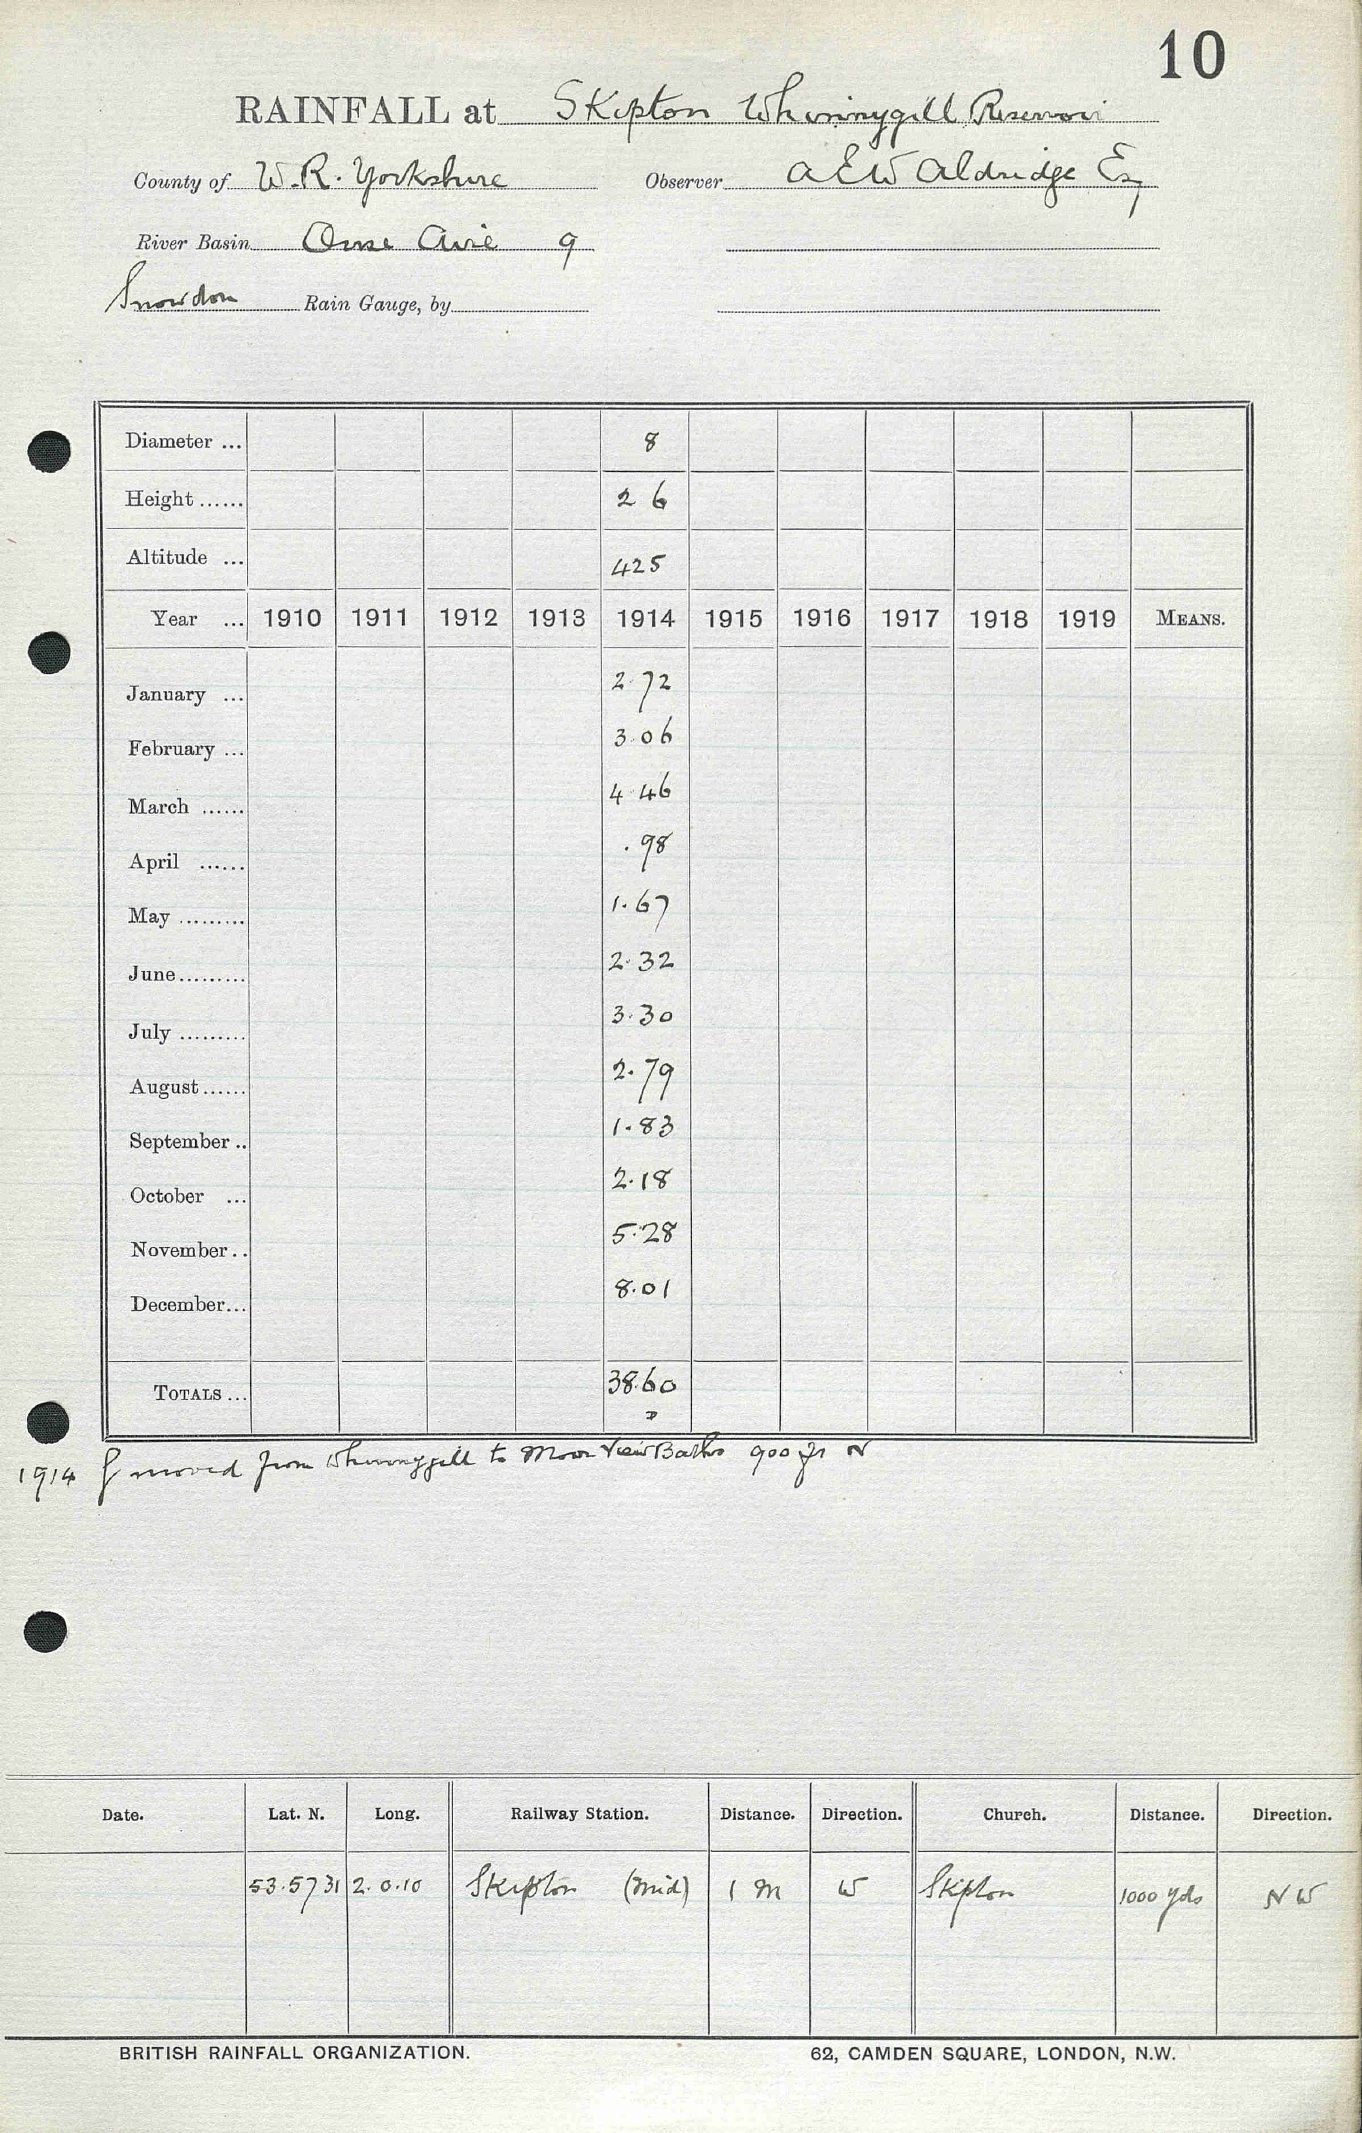 10
RAINFALL at Skipton Whinnygill Reservoir
County of W.R. Yorkshire Observer A E W Aldridge Esq
River Basin Ouse Aire 9
Snowdon Rain Gauge, by
Diameter ... 8
Height ...... 2 6
Altitude ... 425
Year ... 1910 1911 1912 1913 1914 1915 1916 1917 1918 1919 MEANS.
January ... 2.72
February ... 3.06
March ...... 4.46
April ...... .98
May ......... 1.67
June ......... 2.32
July ......... 3.30
August ...... 2.79
September .. 1.83
October ... 2.18
November .. 5.28
December ... 8.01
TOTALS ... 38.60
1914 G moved from Whinnygill to Moor View Baths 900 yds N
Date. Lat. N. Long. Railway Station. Distance. Direction. Church. Distance. Direction.
53.57 31 2.0.10 Skipton (Mid) 1 m W Skipton 1000 yds NW
BRITISH RAINFALL ORGANIZATION. 62, CAMDEN SQUARE, LONDON, N.W.